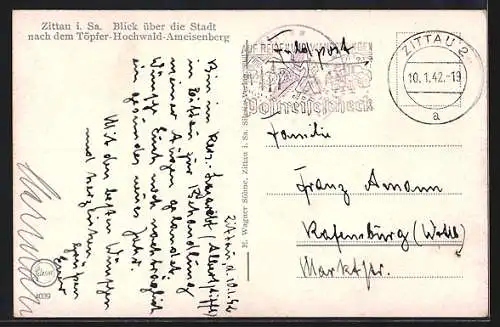 Zittau i. Sa. Blick über die Stadt
nach dem Töpfer-Hochwald-Ameisenberg
Zittau, d. 10.1.42
Bin im Res. Lazarett
in Zittau zur Behandlung
meiner Augen gelandet.
Wünsche Euch noch nachträglich
ein gesundes neues Jahr.
Mit den besten Wünschen
und herzlichen
Grüßen
Euer
Hermann
4039
E. Wagner Söhne, Zittau i. Sa.
AUF REISEN
Feldpost
Postreisescheck
ZITTAU 2
10.1.42.-19
a
Familie
Franz Amann
Ravensburg (Wttbg)
Marktstr.